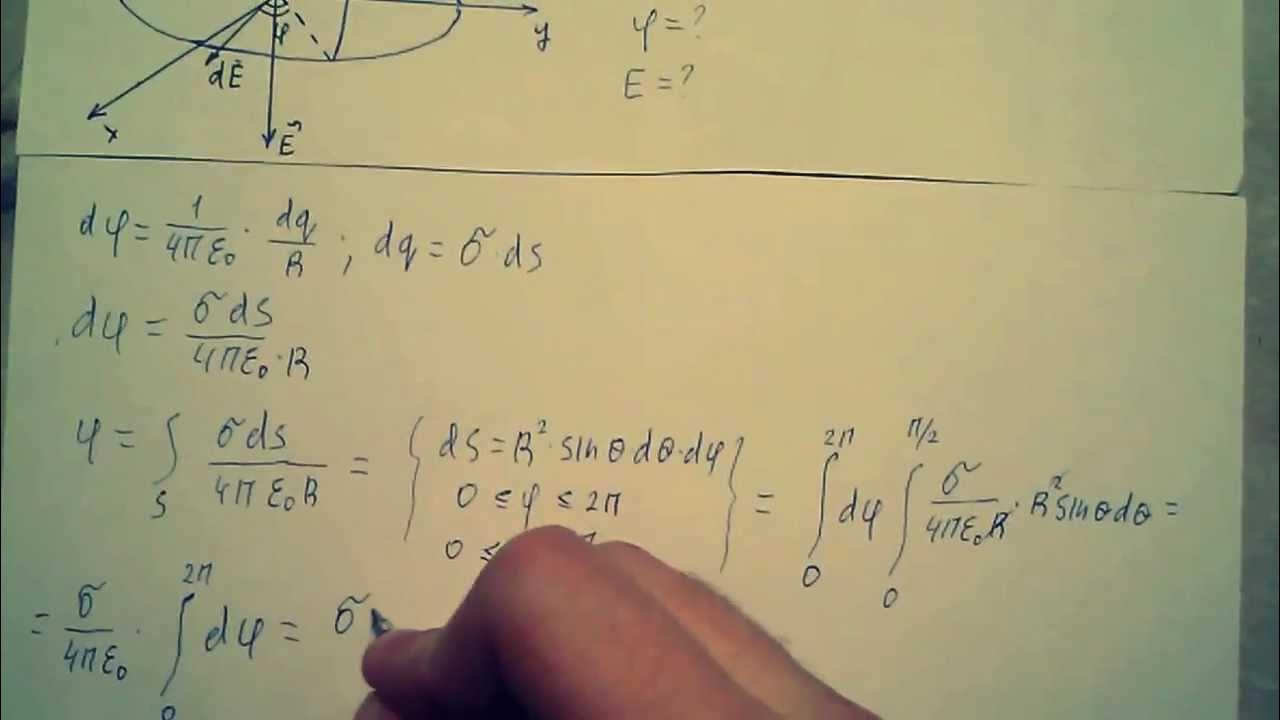 φ = ?
y
φ
dE⃗
E = ?
x
E⃗
dφ = 1/4πε₀ · dq/R ; dq = σ·ds
dφ = σds/4πε₀·R
φ = ∫_S σds/4πε₀R = { ds = R²·sinθdθ·dφ
0 ≤ φ ≤ 2π
0 ≤ } = ∫₀^2π dφ ∫₀^π/2 σ/4πε₀R · R²sinθdθ =
= σ/4πε₀ · ∫₀^2π dφ = σ